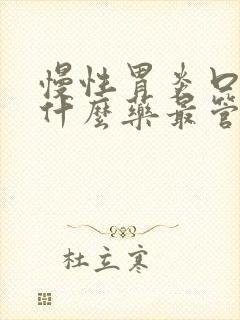 慢性胃炎口
什麼藥最管
杜立寒